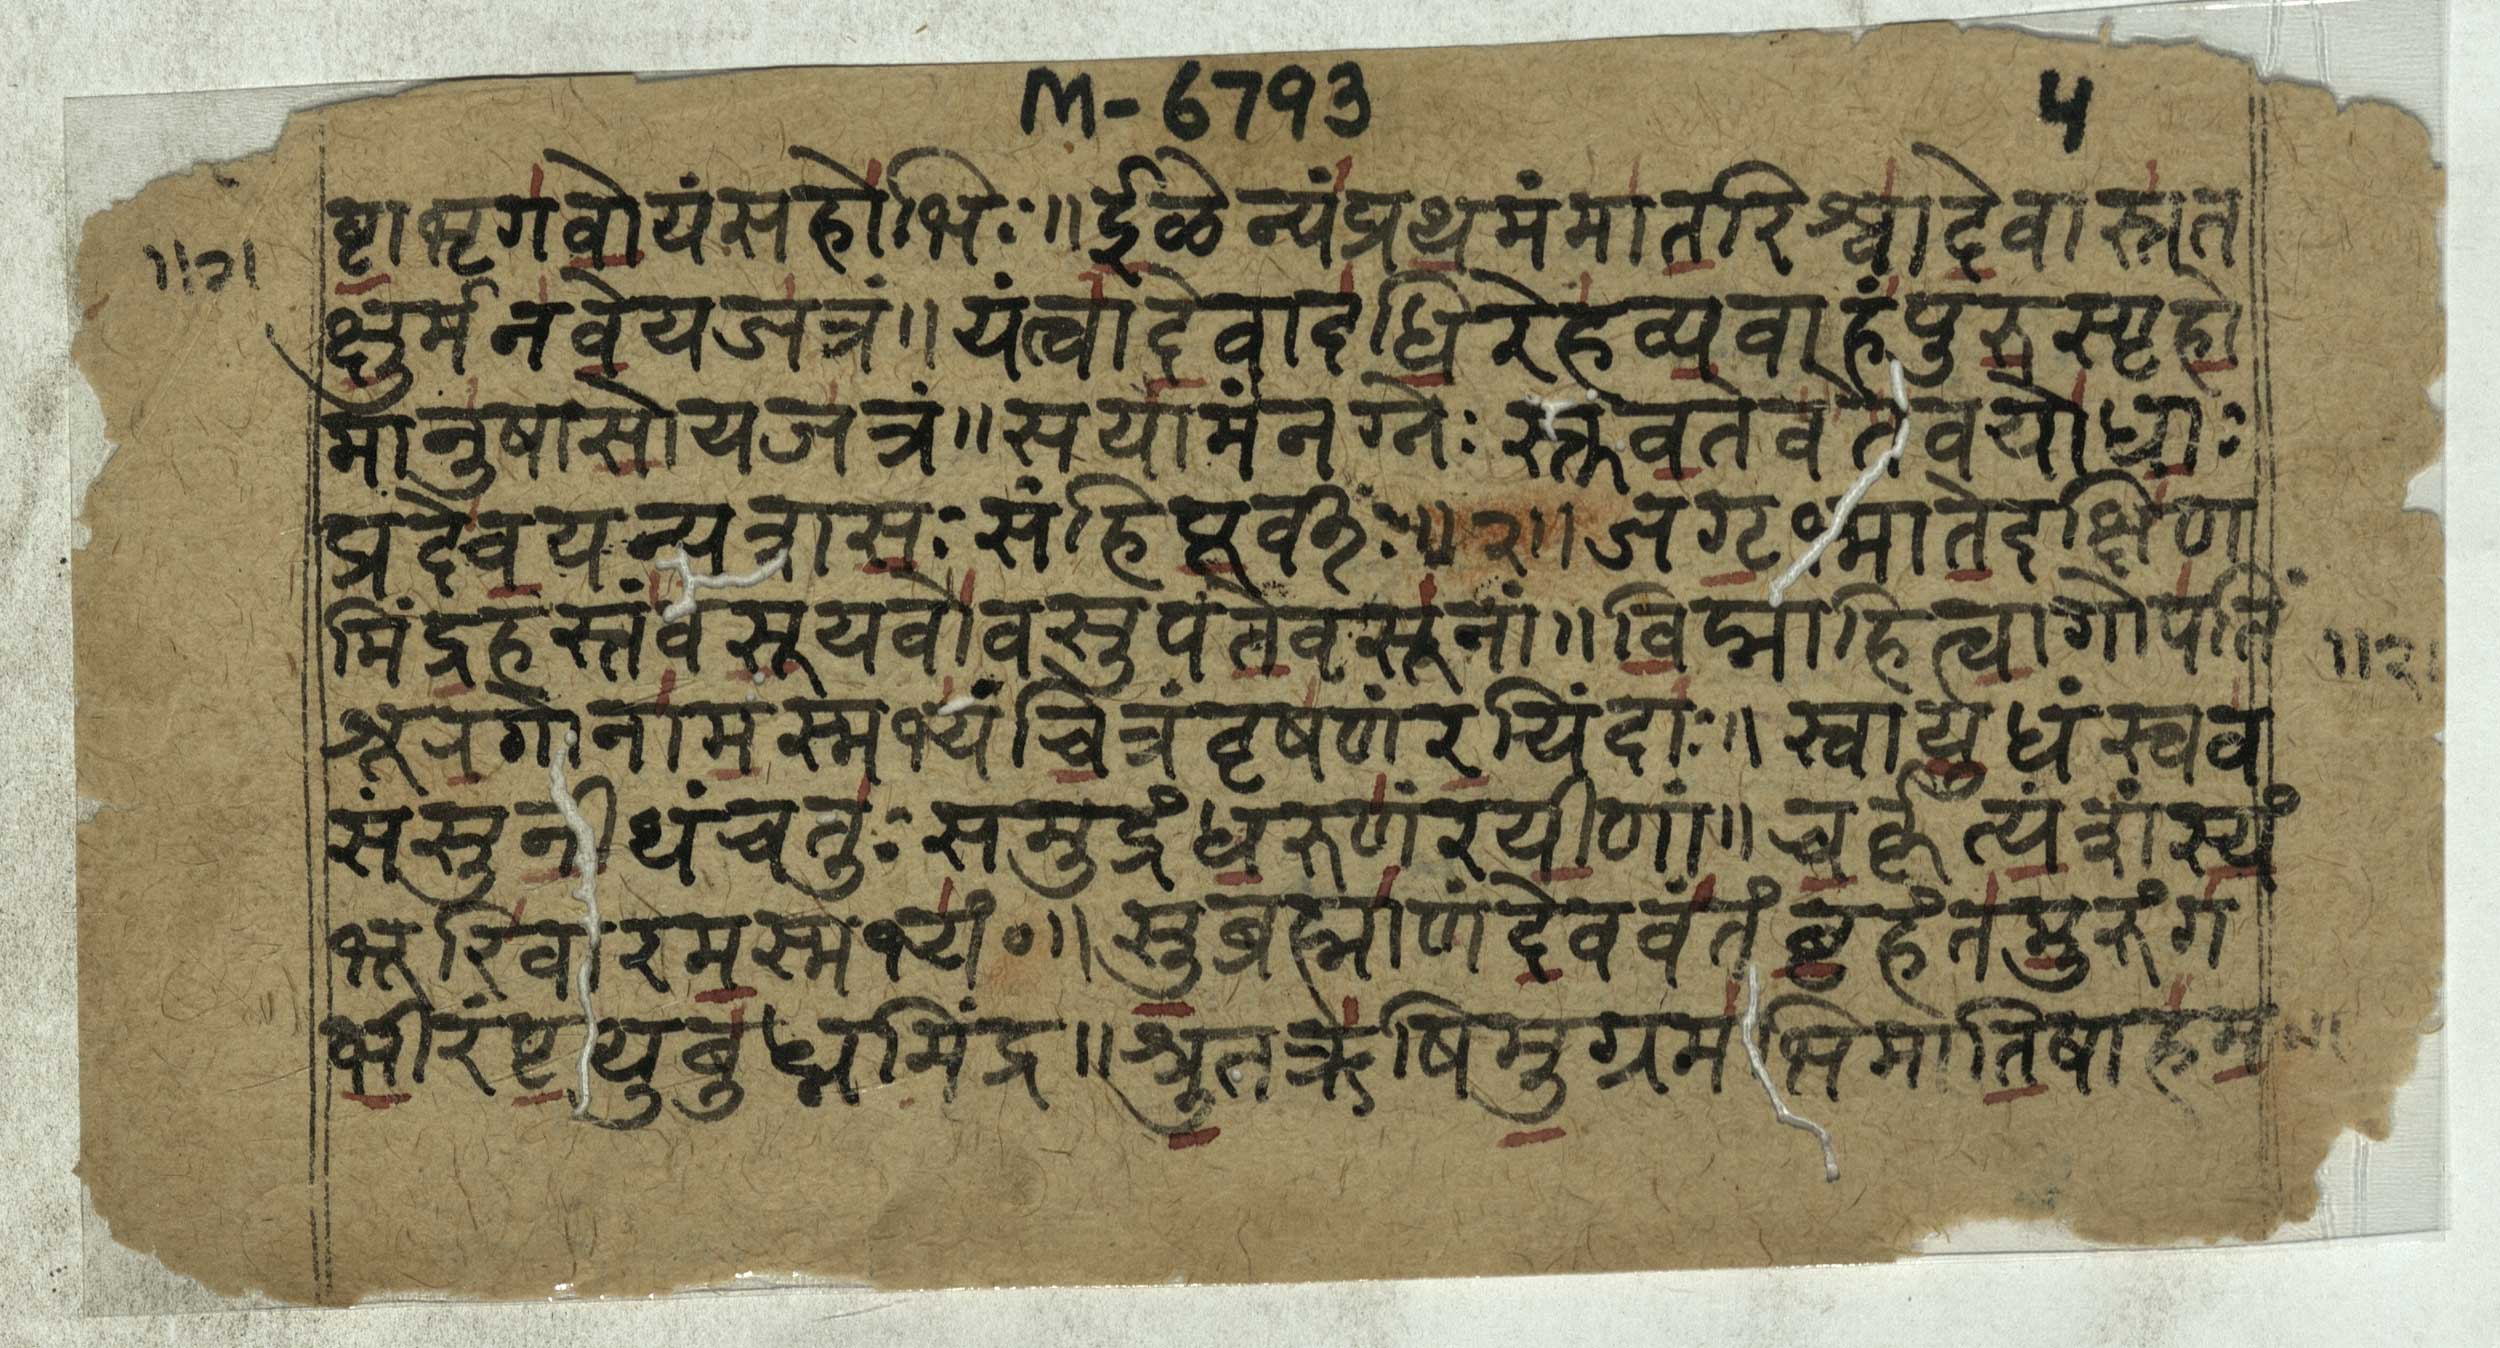 M-6793
५
ष्टाभृगवोयंसहोभिः॥ईळेन्यंप्रथमंमातरिश्वादेवास्तत
॥२।
क्षुर्मनवेयजत्रं॥यंत्वादेवादधिरेहव्यवाहंपुरुस्पृहो
मानुषासोयजत्रं॥सयामंनग्नेः स्तुवतेवतेवयोधाः
प्रदेवयन्यत्रासः संहिपूर्वीः॥२॥जगृभ्मातेदक्षिण
मिंद्रहस्तंवसूयवोवसुपतेवसूनां॥विद्माहित्वागोपतिं
॥२।
शूरगोनामस्मभ्यंचित्रंवृषणंरयिंदाः॥स्वायुधंस्वव
संसुनीथंचतुः समुद्रंधरुणंरयीणां॥चर्कृत्यंशंस्यं
भूरिवारमस्मभ्यं०॥सुब्रह्माणंदेववंतंबृहंतमुरुंग
भीरंपृथुबुध्नमिंद्र॥श्रुतऋषिमुग्रमभिमातिषाहम